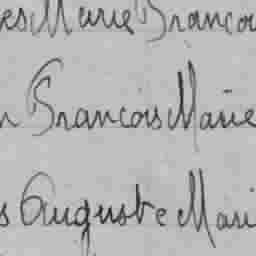 es Marie Francoi
n Francois Marie
s Auguste Mari